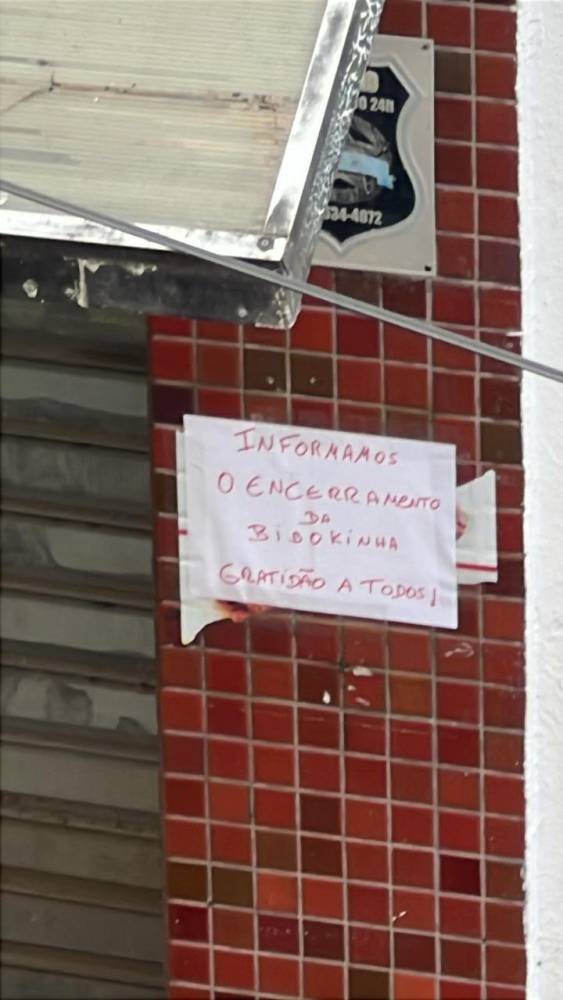 24H
334-4072
INFORMAMOS
O ENCERRAMENTO
DA
BIDOKINHA
GRATIDÃO A TODOS!